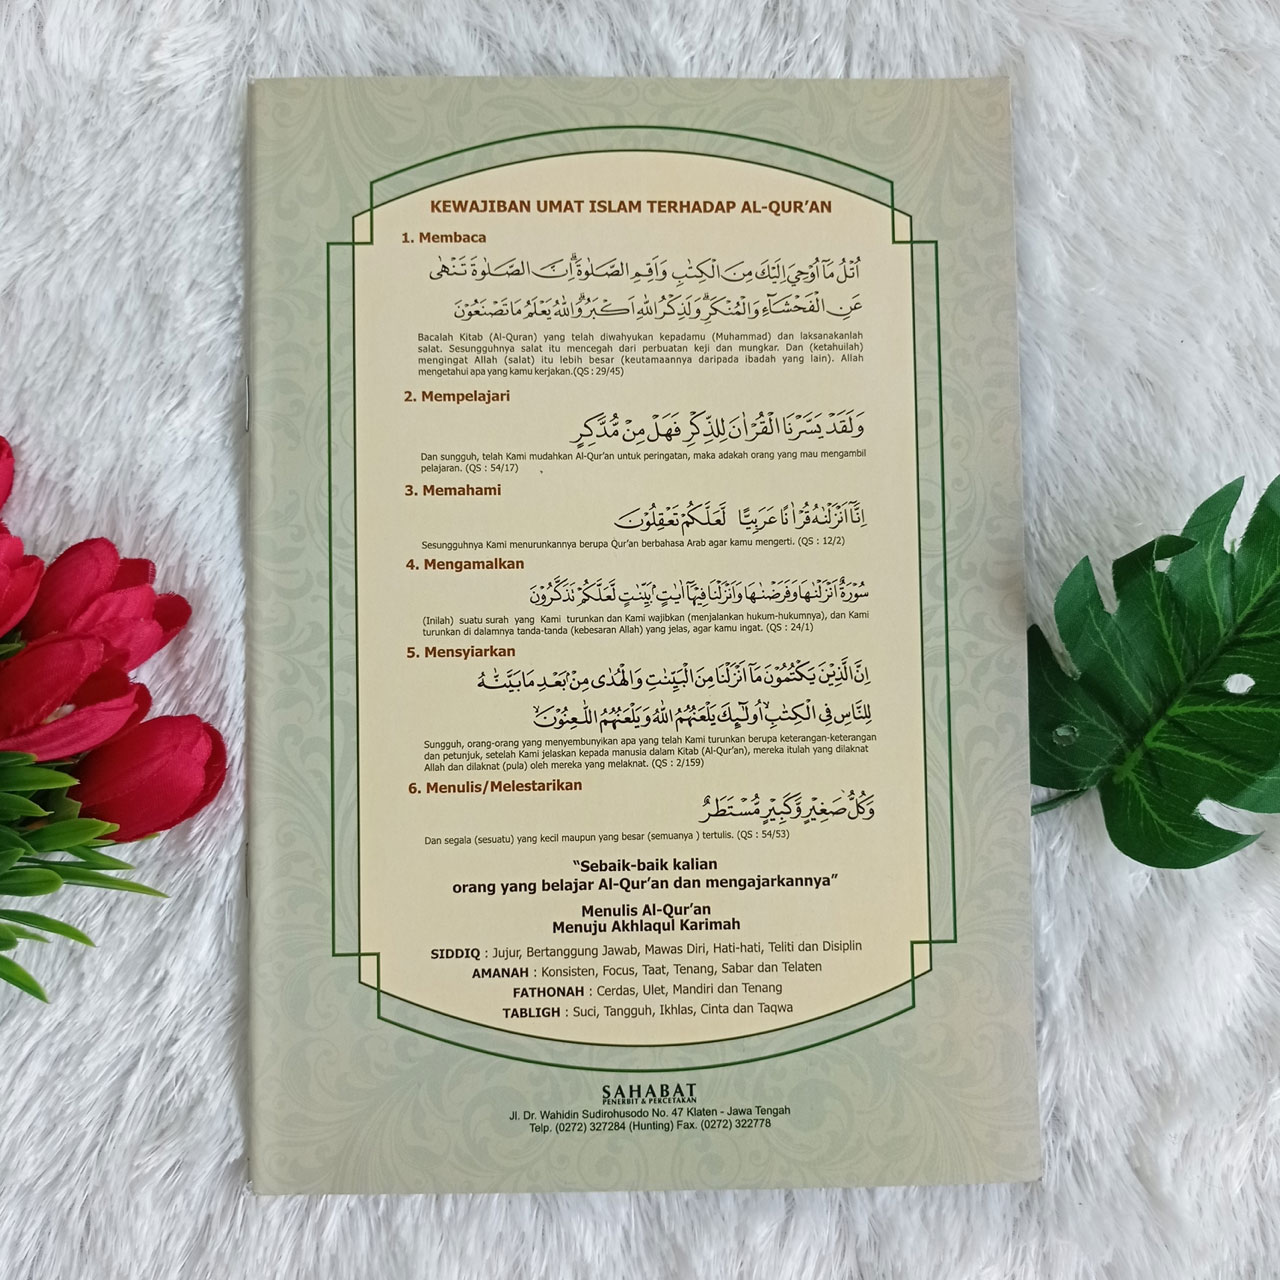 KEWAJIBAN UMAT ISLAM TERHADAP AL-QUR'AN
1. Membaca
اُتْلُ مَآ اُوْحِيَ اِلَيْكَ مِنَ الْكِتٰبِ وَاَقِمِ الصَّلٰوةَۗ اِنَّ الصَّلٰوةَ تَنْهٰى
عَنِ الْفَحْشَاۤءِ وَالْمُنْكَرِۗ وَلَذِكْرُ اللّٰهِ اَكْبَرُۗ وَاللّٰهُ يَعْلَمُ مَا تَصْنَعُوْنَ
Bacalah Kitab (Al-Quran) yang telah diwahyukan kepadamu (Muhammad) dan laksanakanlah
salat. Sesungguhnya salat itu mencegah dari perbuatan keji dan mungkar. Dan (ketahuilah)
mengingat Allah (salat) itu lebih besar (keutamaannya daripada ibadah yang lain). Allah
mengetahui apa yang kamu kerjakan.(QS : 29/45)
2. Mempelajari
وَلَقَدْ يَسَّرْنَا الْقُرْاٰنَ لِلذِّكْرِ فَهَلْ مِنْ مُّدَّكِرٍ
Dan sungguh, telah Kami mudahkan Al-Qur'an untuk peringatan, maka adakah orang yang mau mengambil
pelajaran. (QS : 54/17)
3. Memahami
اِنَّآ اَنْزَلْنٰهُ قُرْاٰنًا عَرَبِيًّا لَّعَلَّكُمْ تَعْقِلُوْنَ
Sesungguhnya Kami menurunkannya berupa Qur'an berbahasa Arab agar kamu mengerti. (QS : 12/2)
4. Mengamalkan
سُوْرَةٌ اَنْزَلْنٰهَا وَفَرَضْنٰهَا وَاَنْزَلْنَا فِيْهَآ اٰيٰتٍۢ بَيِّنٰتٍ لَّعَلَّكُمْ تَذَكَّرُوْنَ
(Inilah) suatu surah yang Kami turunkan dan Kami wajibkan (menjalankan hukum-hukumnya), dan Kami
turunkan di dalamnya tanda-tanda (kebesaran Allah) yang jelas, agar kamu ingat. (QS : 24/1)
5. Mensyiarkan
اِنَّ الَّذِيْنَ يَكْتُمُوْنَ مَآ اَنْزَلْنَا مِنَ الْبَيِّنٰتِ وَالْهُدٰى مِنْۢ بَعْدِ مَا بَيَّنّٰهُ
لِلنَّاسِ فِى الْكِتٰبِۙ اُولٰۤىِٕكَ يَلْعَنُهُمُ اللّٰهُ وَيَلْعَنُهُمُ اللّٰعِنُوْنَۙ
Sungguh, orang-orang yang menyembunyikan apa yang telah Kami turunkan berupa keterangan-keterangan
dan petunjuk, setelah Kami jelaskan kepada manusia dalam Kitab (Al-Qur'an), mereka itulah yang dilaknat
Allah dan dilaknat (pula) oleh mereka yang melaknat. (QS : 2/159)
6. Menulis/Melestarikan
وَكُلُّ صَغِيْرٍ وَّكَبِيْرٍ مُّسْتَطَرٌ
Dan segala (sesuatu) yang kecil maupun yang besar (semuanya ) tertulis. (QS : 54/53)
"Sebaik-baik kalian
orang yang belajar Al-Qur'an dan mengajarkannya"
Menulis Al-Qur'an
Menuju Akhlaqul Karimah
SIDDIQ : Jujur, Bertanggung Jawab, Mawas Diri, Hati-hati, Teliti dan Disiplin
AMANAH : Konsisten, Focus, Taat, Tenang, Sabar dan Telaten
FATHONAH : Cerdas, Ulet, Mandiri dan Tenang
TABLIGH : Suci, Tangguh, Ikhlas, Cinta dan Taqwa
SAHABAT
PENERBIT & PERCETAKAN
Jl. Dr. Wahidin Sudirohusodo No. 47 Klaten - Jawa Tengah
Telp. (0272) 327284 (Hunting) Fax. (0272) 322778